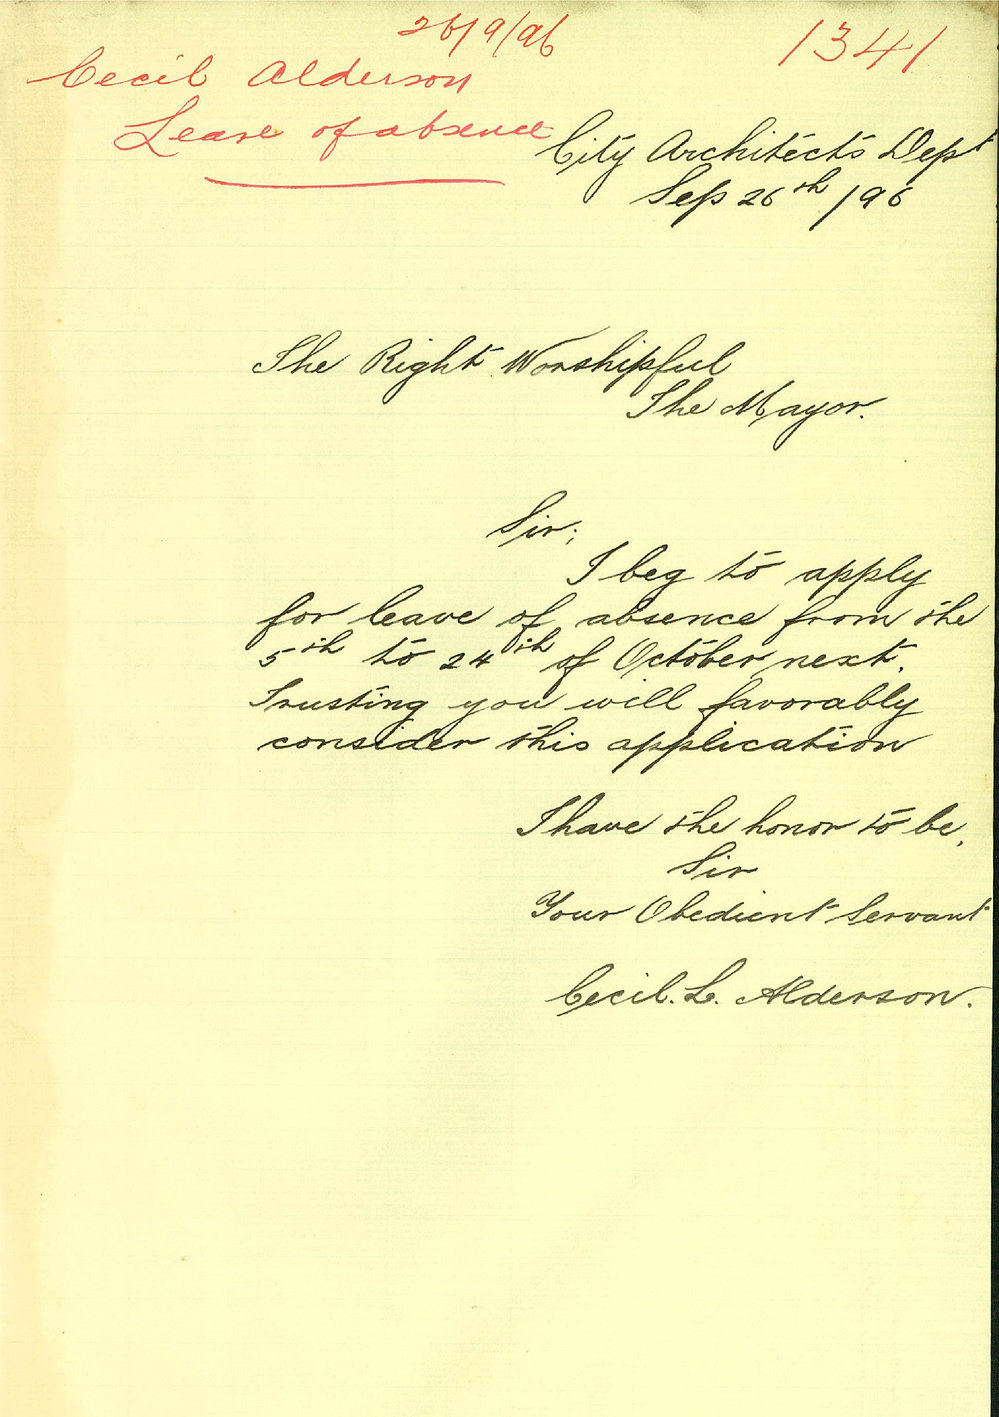 26/9/96
1341
Cecil Alderson
Leave of absence
City Architects Dept
Sep 26th /96
The Right Worshipful
The Mayor.
Sir;
I beg to apply
for leave of absence from the
5th to 24th of October next.
Trusting you will favorably
consider this application
I have the honor to be,
Sir
Your Obedient Servant
Cecil. L. Alderson.